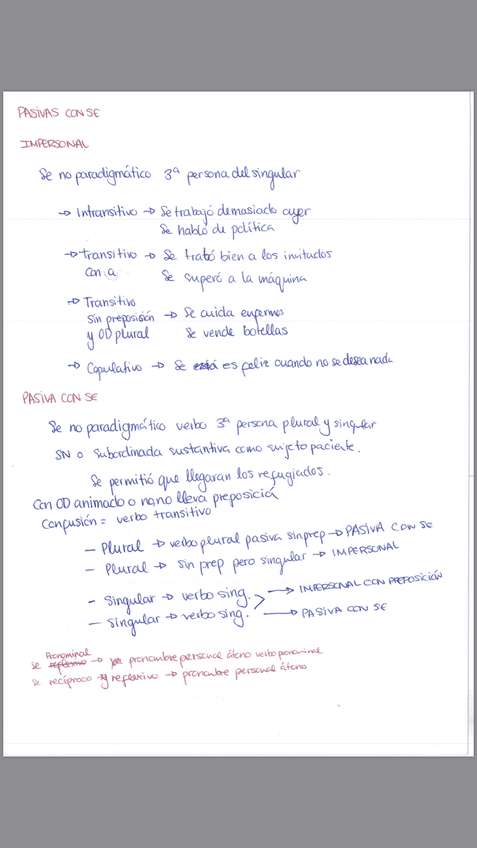 PASIVAS CON SE
IMPERSONAL
Se no paradigmático 3ª persona del singular
→ Intransitivo → Se trabajó demasiado ayer
Se habló de política
→ Transitivo → Se trató bien a los invitados
con a Se superó a la máquina
→ Transitivo
sin preposición → Se cuida enfermos
y OD plural Se vende botellas
→ Copulativo → Se está es feliz cuando no se desea nada
PASIVA CON SE
Se no paradigmático verbo 3ª persona plural y singular
SN o subordinada sustantiva como sujeto paciente.
Se permitió que llegaran los refugiados.
Con OD animado o no no lleva preposició
Confusión = verbo transitivo
— Plural → verbo plural pasiva sin prep → PASIVA CON SE
— Plural → sin prep pero singular → IMPERSONAL
— Singular → verbo sing. → IMPERSONAL CON PREPOSICIÓN
— Singular → verbo sing. → PASIVA CON SE
Pronominal
Se → pronombre personal átono verbo pronominal
Se recíproco y reflexivo → pronombre personal átono